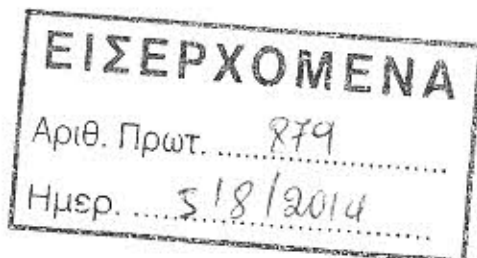 ΕΙΣΕΡΧΟΜΕΝΑ
Αριθ. Πρωτ. ..... 879 .....
Ημερ. ..... 5/8/2014 .....